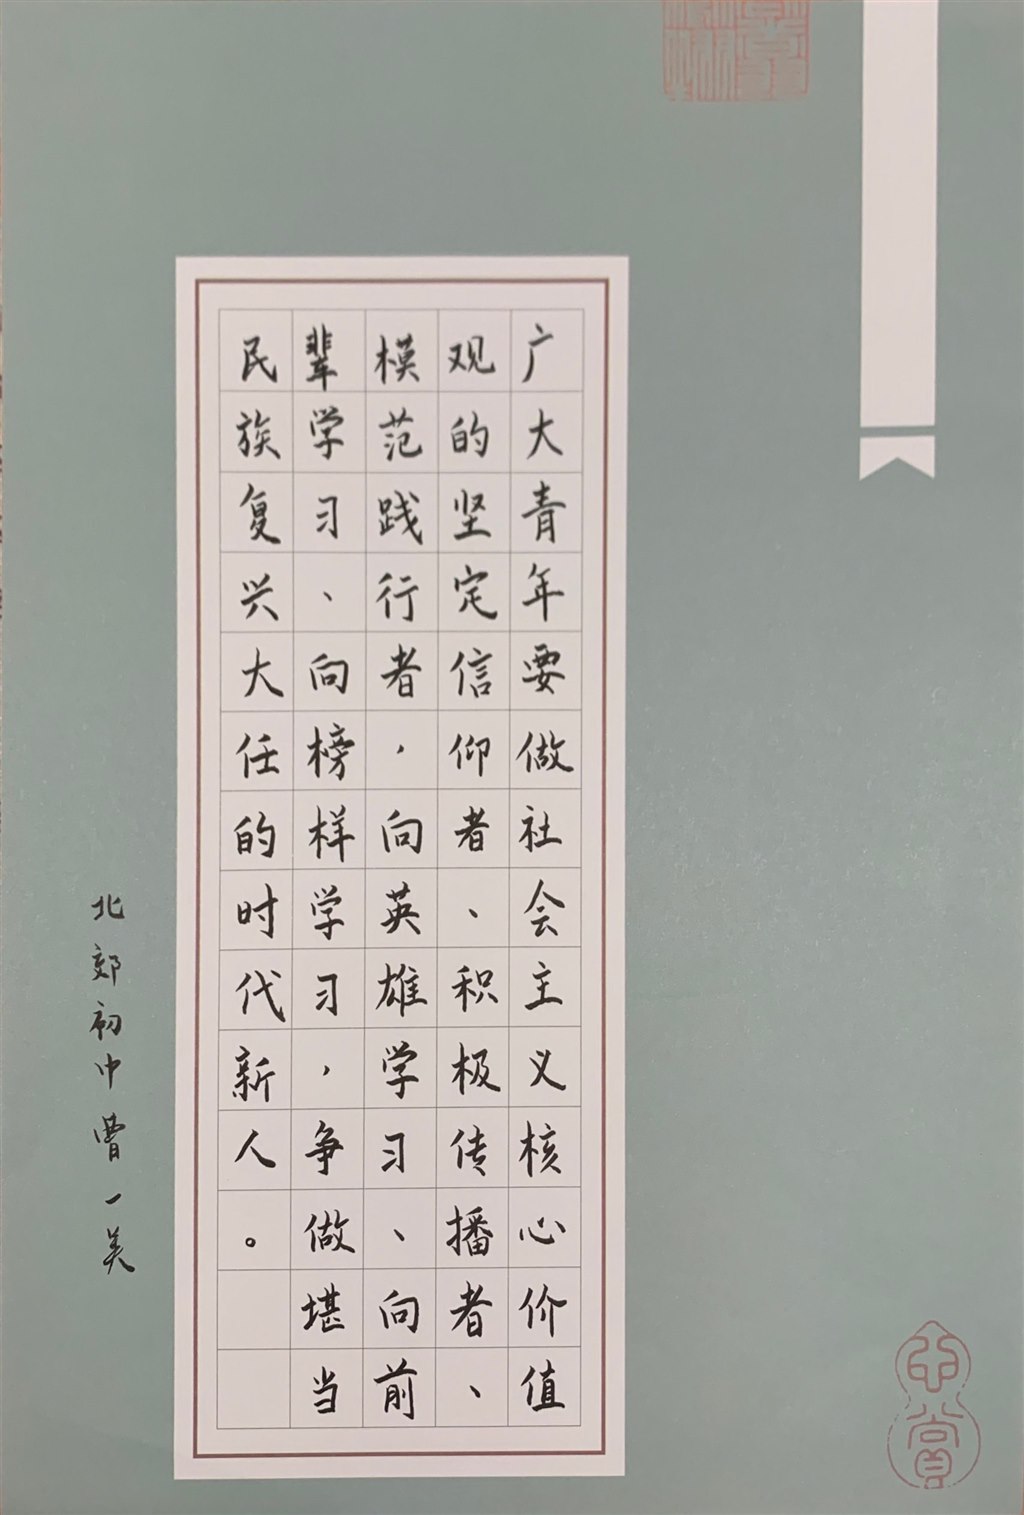 广大青年要做社会主义核心价值
观的坚定信仰者、积极传播者、
模范践行者，向英雄学习、向前
辈学习、向榜样学习，争做堪当
民族复兴大任的时代新人。
北郊初中曹一美